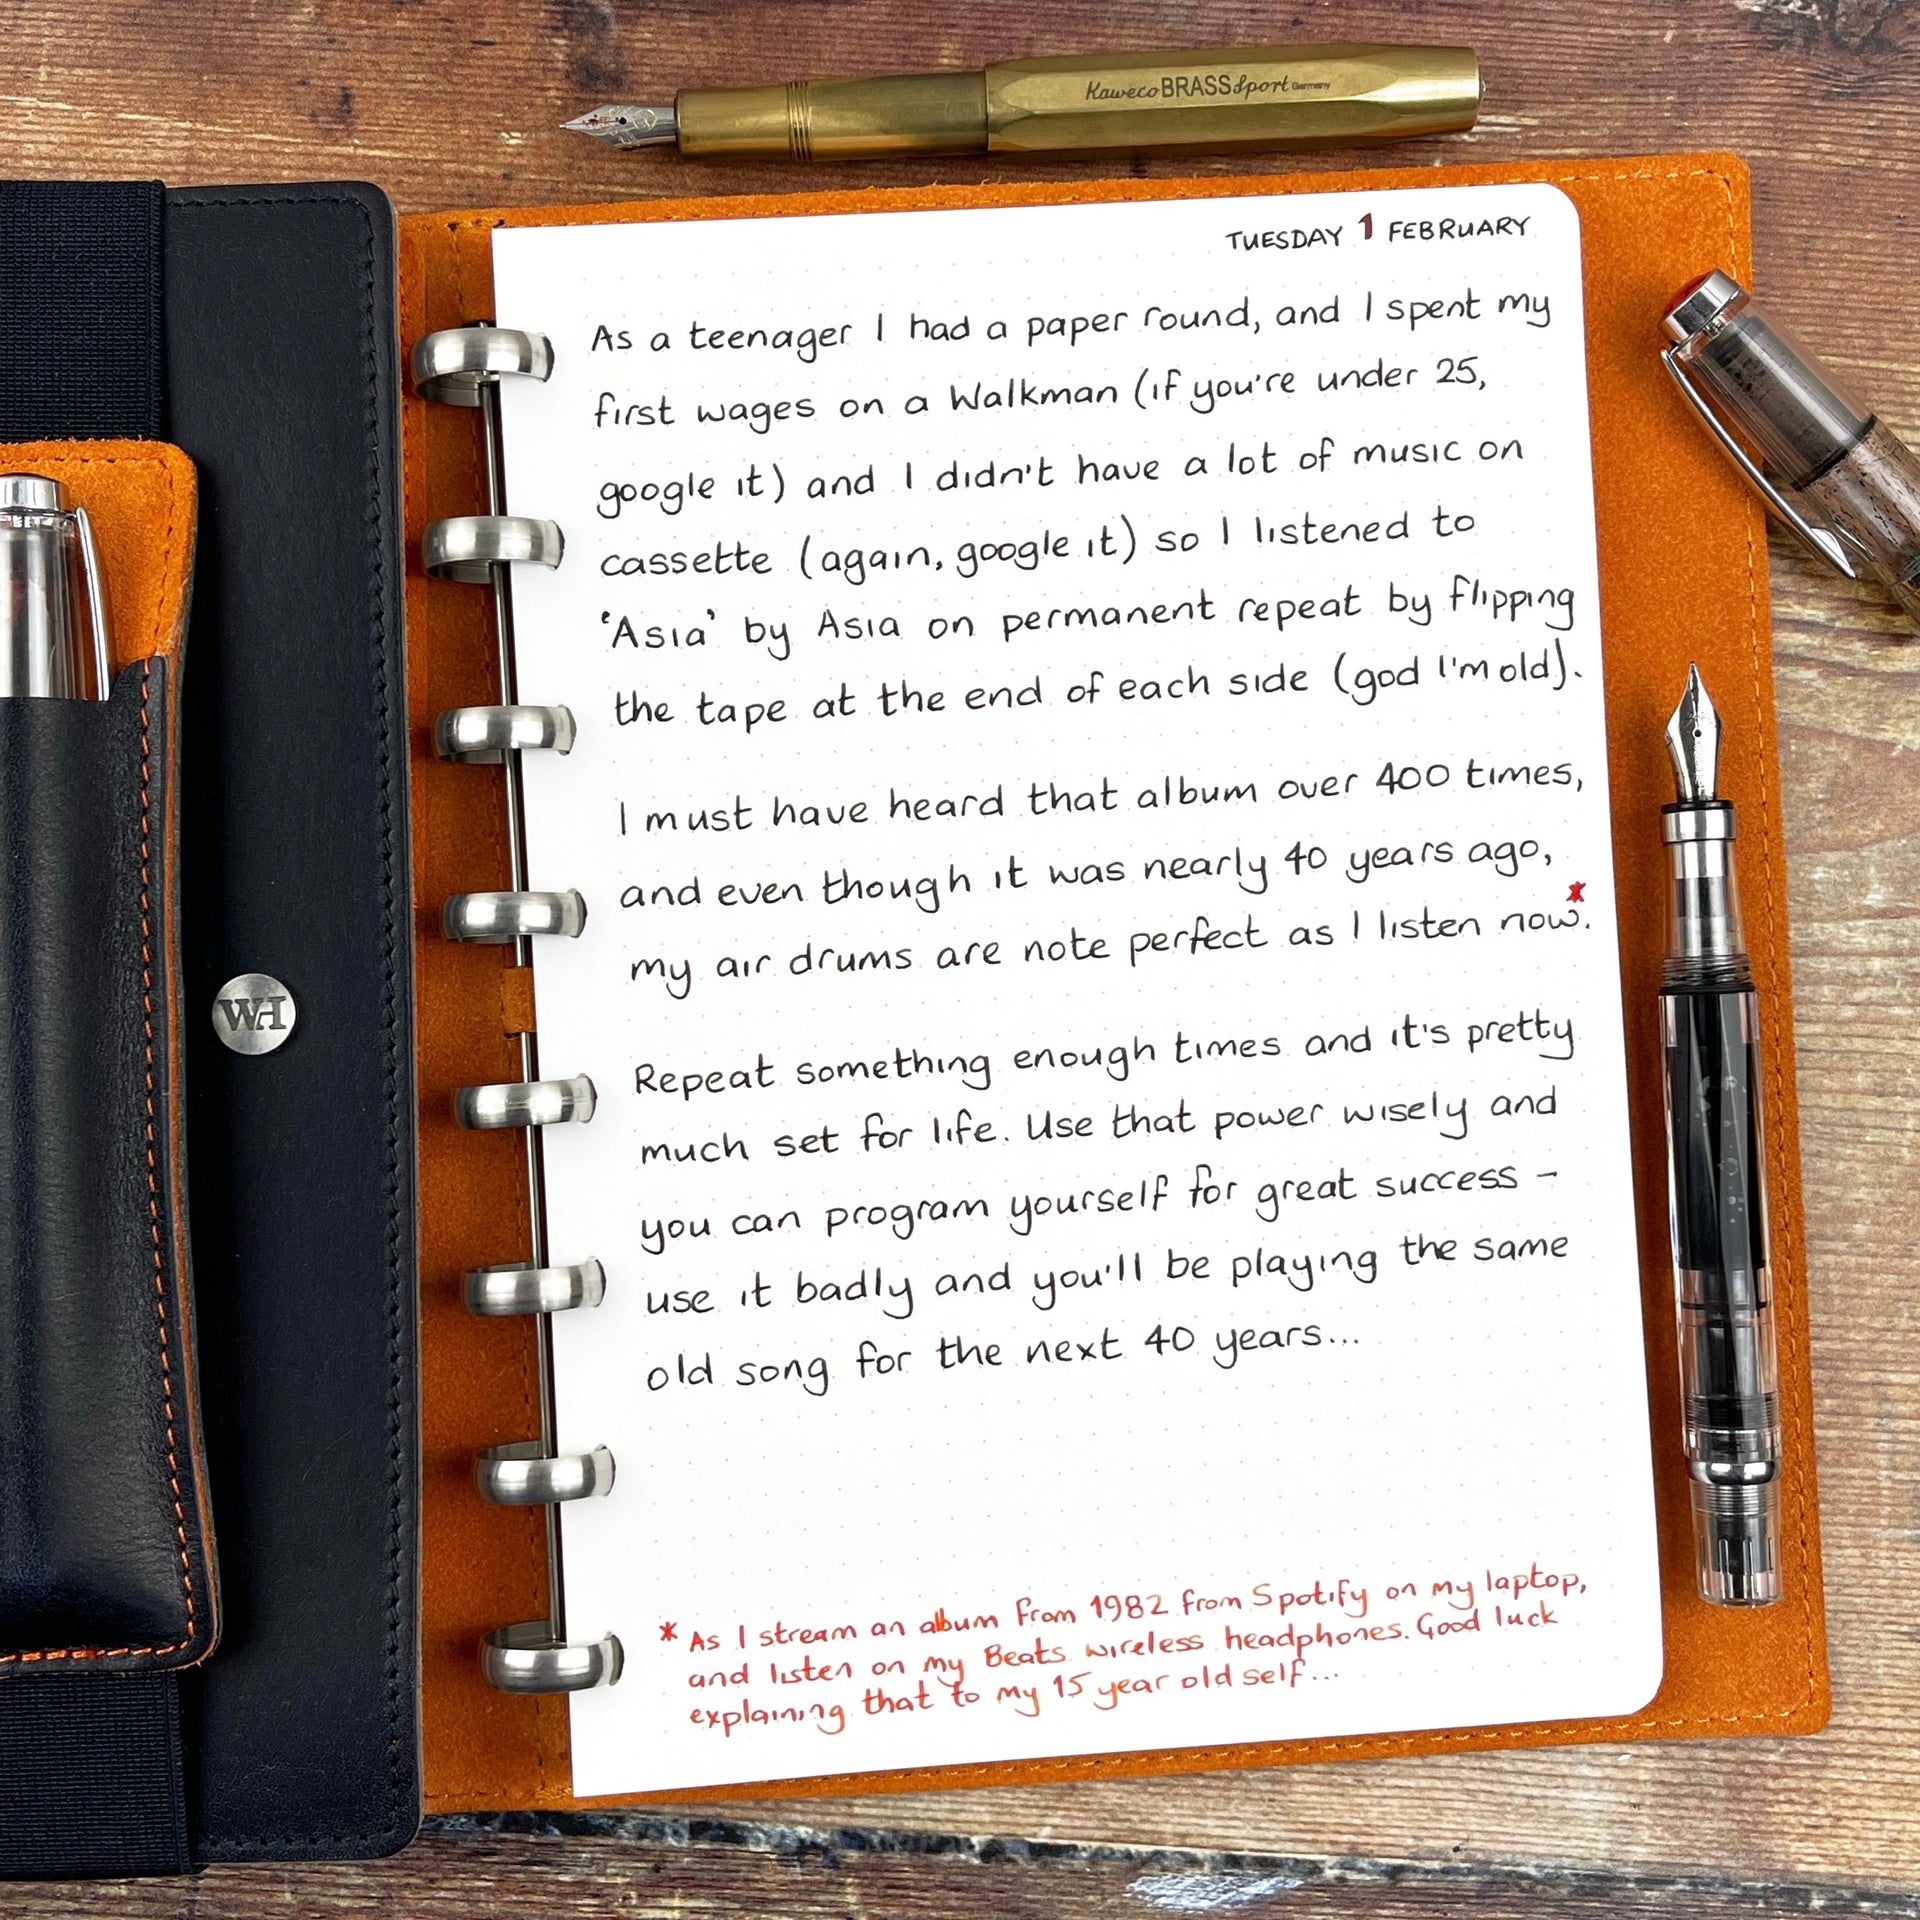 Kaweco BRASS Sport Germany
TUESDAY 1 FEBRUARY
As a teenager I had a paper round, and I spent my
first wages on a Walkman (if you're under 25,
google it) and I didn't have a lot of music on
cassette (again, google it) so I listened to
'Asia' by Asia on permanent repeat by flipping
the tape at the end of each side (god I'm old).
I must have heard that album over 400 times,
and even though it was nearly 40 years ago,
my air drums are note perfect as I listen now*.
Repeat something enough times and it's pretty
much set for life. Use that power wisely and
you can program yourself for great success -
use it badly and you'll be playing the same
old song for the next 40 years...
* As I stream an album from 1982 from Spotify on my laptop,
and listen on my Beats wireless headphones. Good luck
explaining that to my 15 year old self...
WH